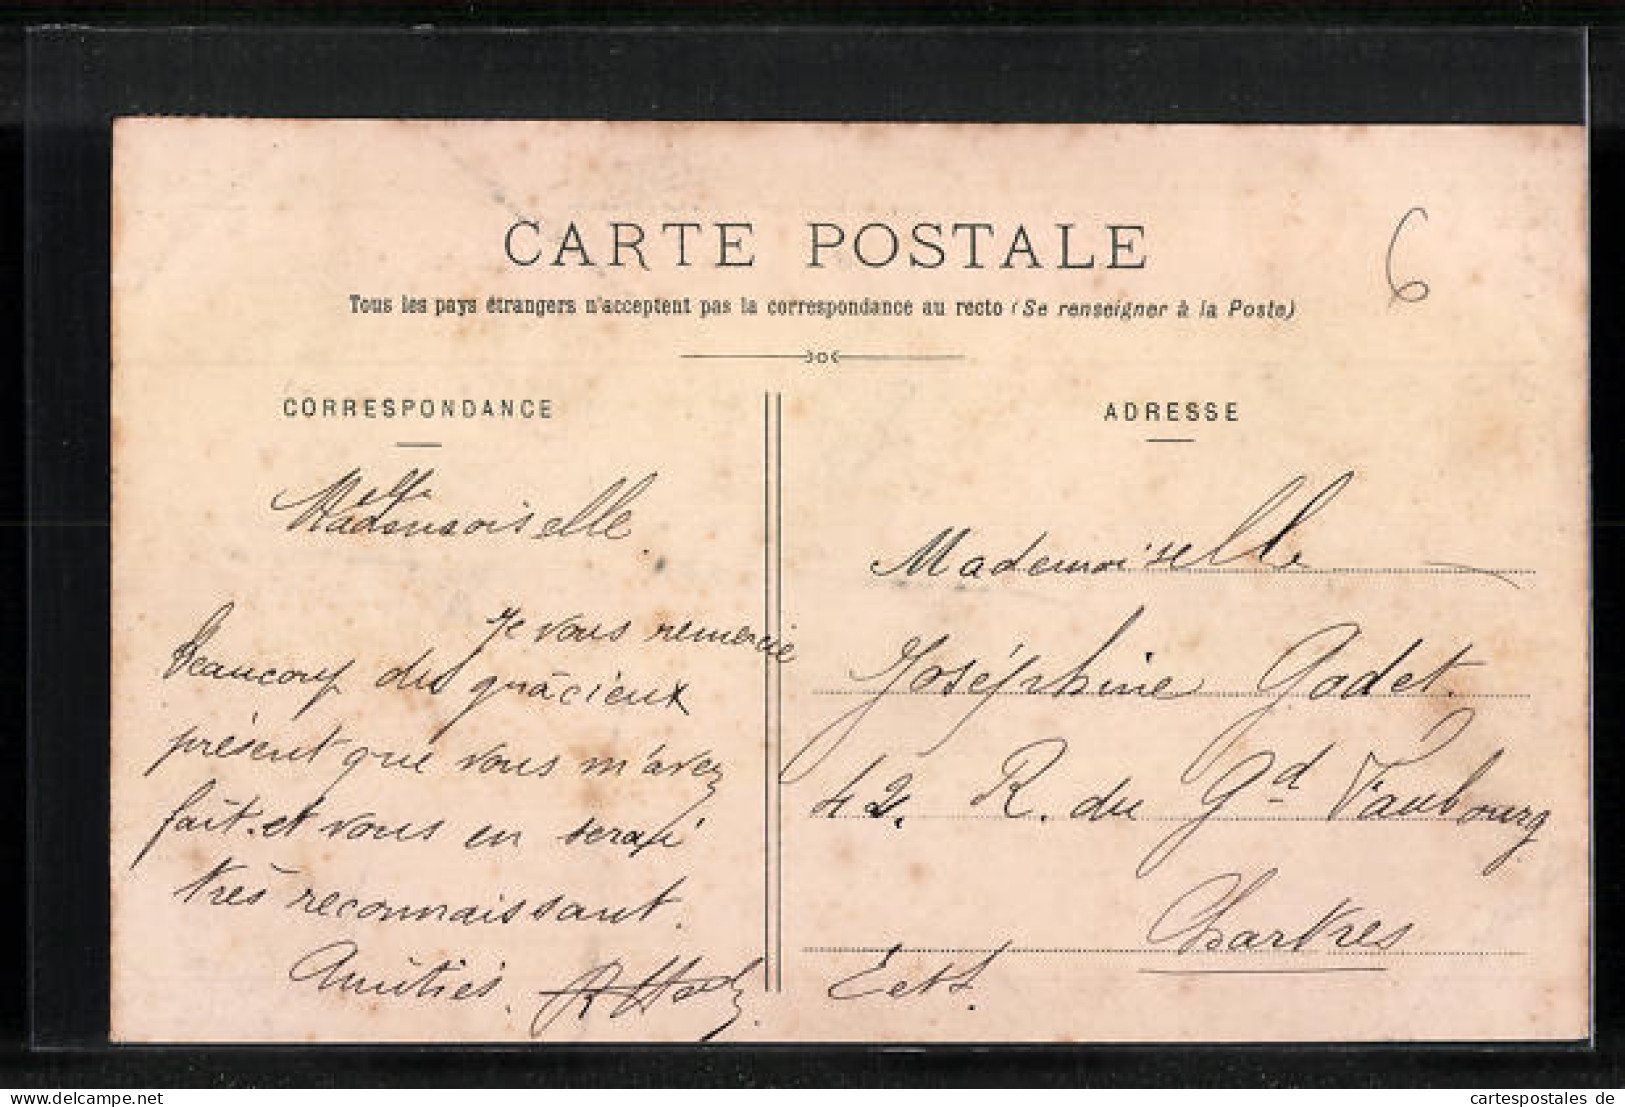 CARTE POSTALE
6
Tous les pays étrangers n'acceptent pas la correspondance au recto (Se renseigner à la Poste)
CORRESPONDANCE
Mademoiselle
Je vous remercie
beaucoup du grâcieux
présent que vous m'avez
fait. et vous en serai
très reconnaissant.
Amitiés.
ADRESSE
Mademoiselle
Joséphine Godet.
42. R. du Gd Faubourg
Chartres
E et L.
www.delcampe.net
cartespostales de